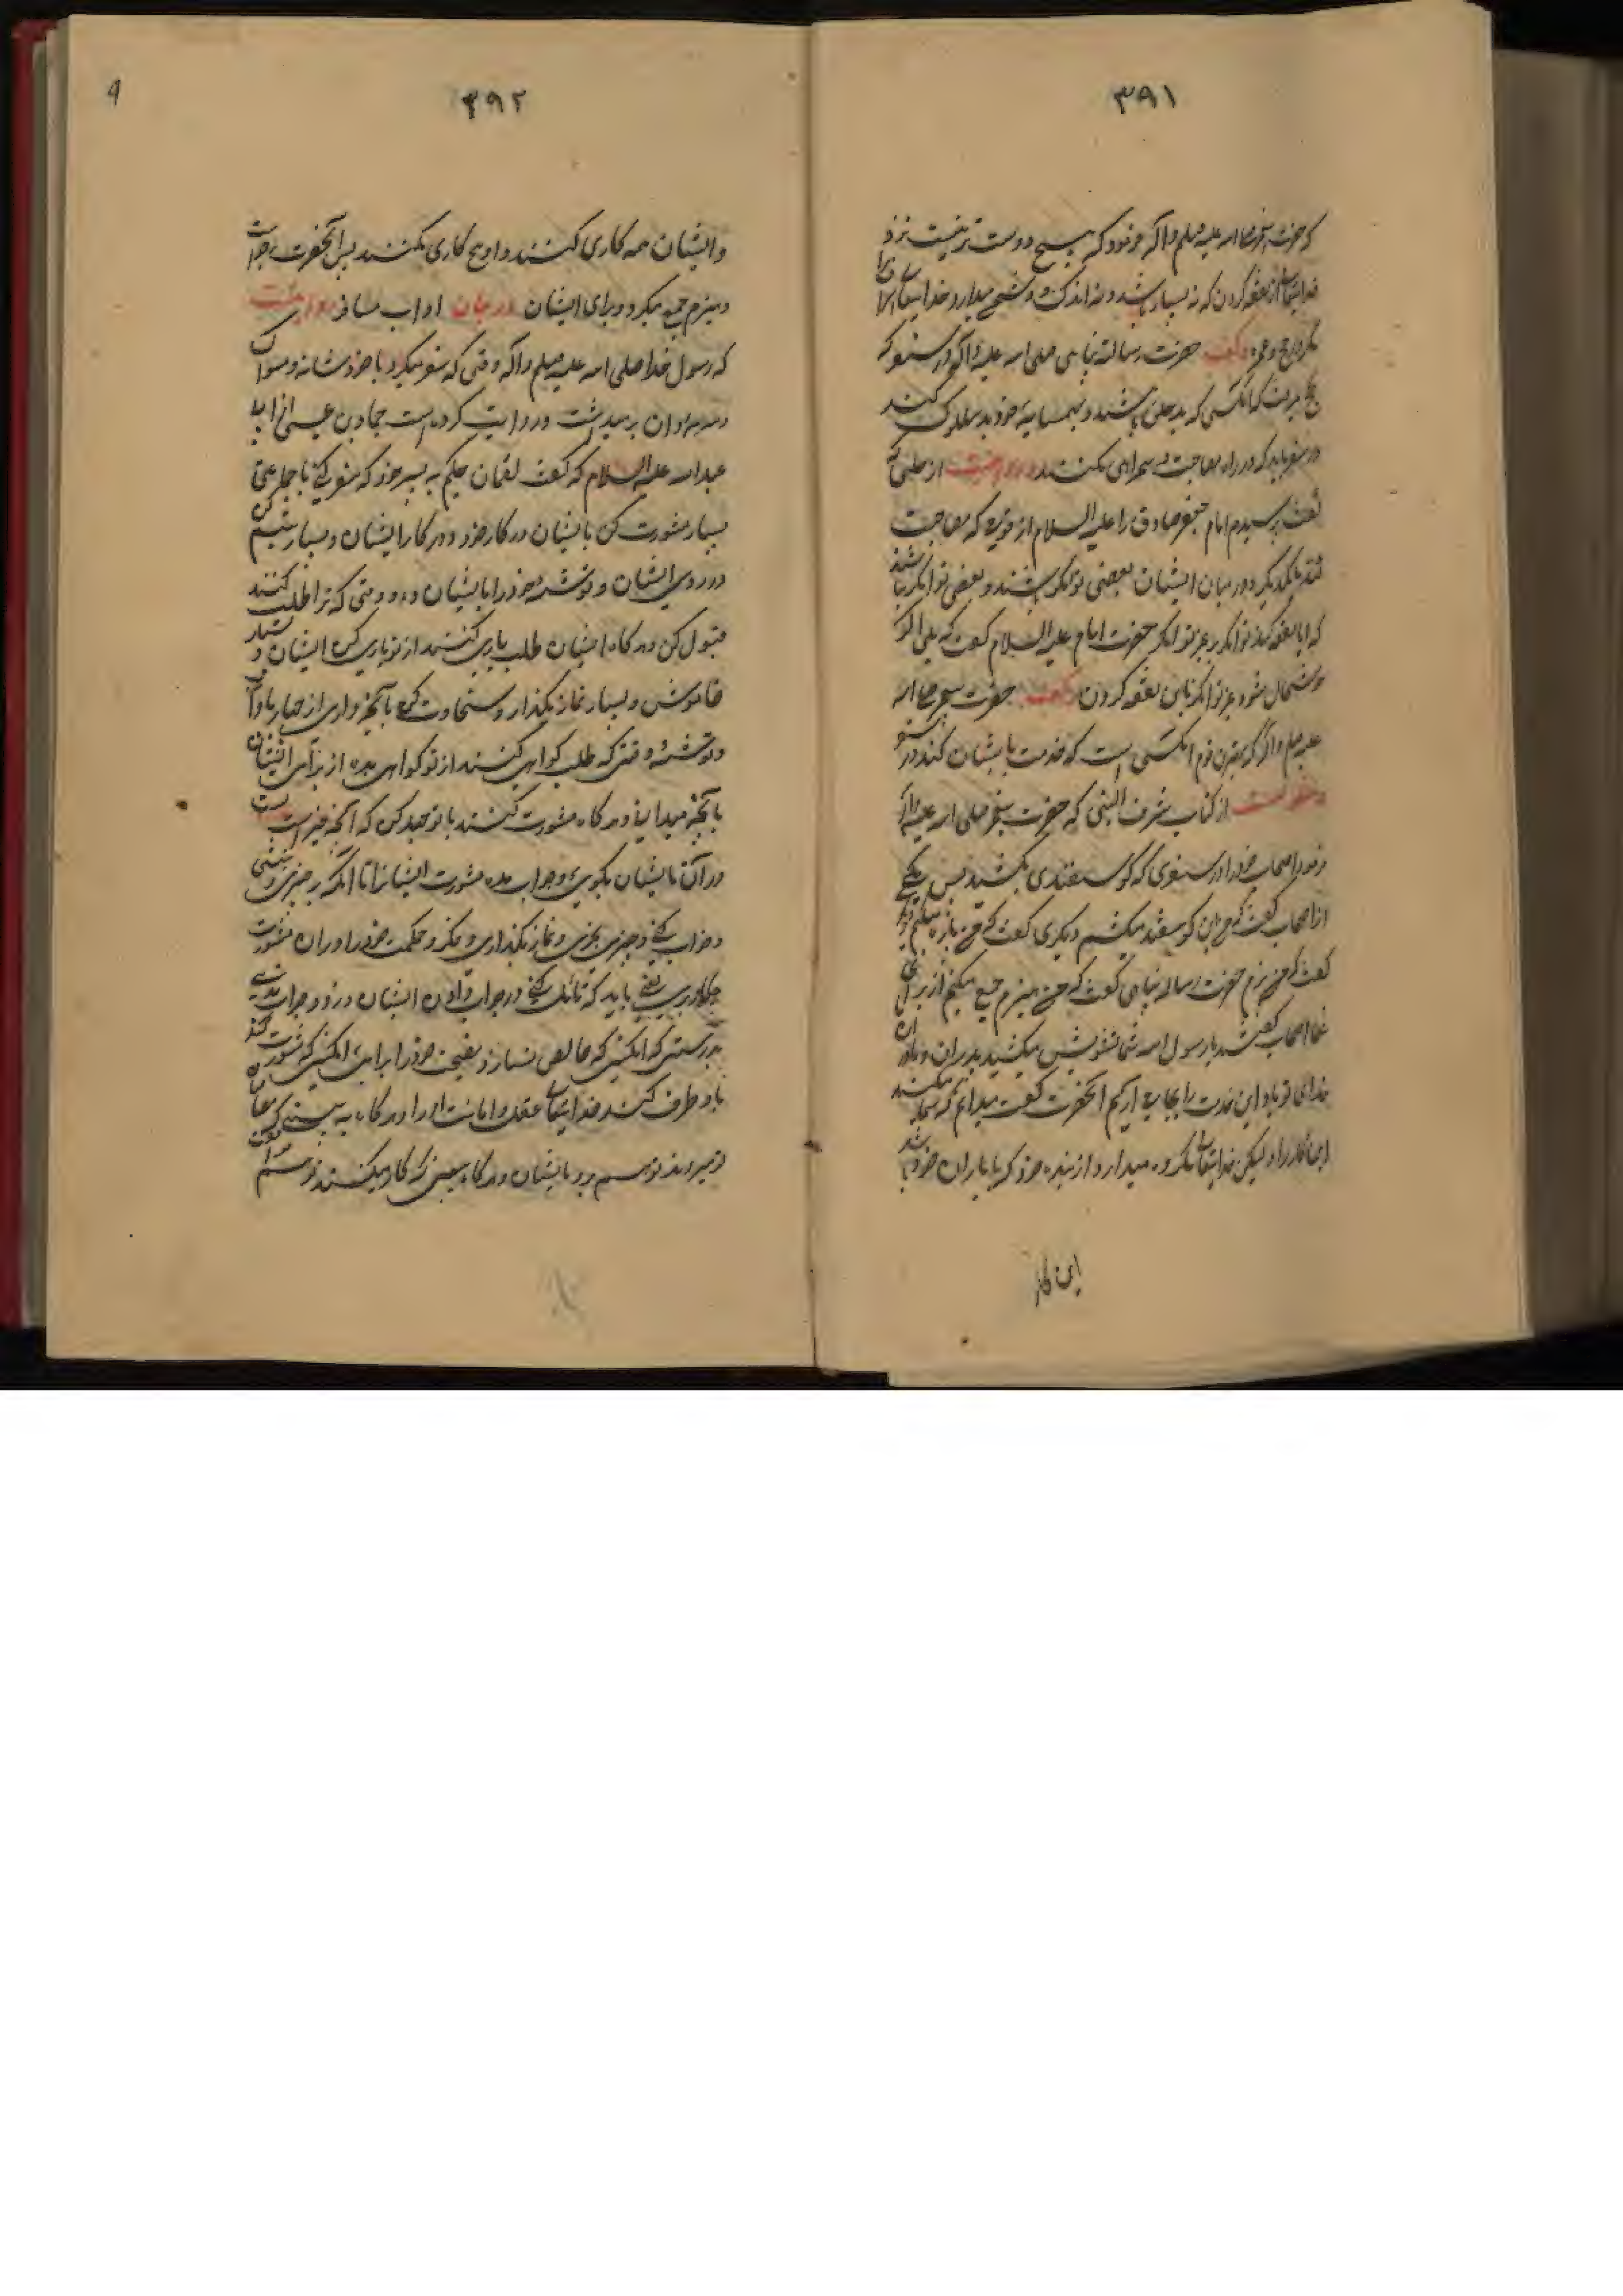 ۳۹۱
که حضرت پیغمبر صلی الله علیه وسلم وآله فرمود که هیچ دوست تر نیست نزد
خدایتعالی از نفقه کردن که نه بسیار باشد و نه اندک و دشمن میدارد خدایتعالی اسراف را
مگر در حج و عمره وگفت حضرت رسالت پناهی صلی الله علیه وآله در سفر که
بحج میرفت که انکسی که بد خلق باشد و بهمسایهٔ خود بد سلوک کند
در سفر باید که در راه مصاحبت و همراهی نکنند و روایت از حلبی که
گفت پرسیدم امام جعفر صادق را علیه السلام از قومی که مصاحبت
کنند بایکدیگر و در میان ایشان بعضی توانگر باشند و بعضی توانگر نباشند
که ایا نفقه کند توانگر بر غیر توانگر حضرت امام علیه السلام گفت که بلی اگر
خوشحال شود غیر توانگر باین نفقه کردن وگفت حضرت پیغمبر صلی الله
علیه وسلم وآله که بهترین قوم انکسی است که خدمت بایشان کند در سفر
ومنقولست از کتاب شرف النبی که حضرت پیغمبر صلی الله علیه وآله
فرمود اصحاب خود را در سفری که گوسفندی بکشید پس یکی
از اصحاب گفت که من این گوسفند میکشم دیگری گفت که من پاره میکنم دیگر
گفت که من پزم حضرت رساله پناهی گفت که من هیزم جمع میکنم از برای
شما اصحاب گفتند یا رسول الله شما تشویش میکشید پدران و مادران
فدای تو باد این خدمت را بجای اریم انحضرت گفت میدانم که شما میکنند
این کار را و لیکن خدایتعالی مکروه میدارد از بنده خود که با یاران خود باشد
این کار
۳۹۲
وایشان همه کاری کنند و او هیچ کاری نکند پس آنحضرت برخواست
وهیزم جمع میکرد برای ایشان در بیان اداب مسافر روایتست
که رسول خدا صلی الله علیه وسلم وآله وقتی که سفر میکرد با خود شانه و مسواک
برمیداشت و روایت کرده است حماد بن عیسی از ابی
عبدالله علیه السلام که گفت لقمان حکیم به پسر خود که سفر کنی با جماعتی
بسیار مشورت کن با ایشان در کار خود و در کار ایشان و بسیار تبسم کن
در روی ایشان و توشه خود را بایشان ده و وقتی که ترا طلب کنند
قبول کن و هرگاه ایشان طلب یاری کنند از تو یاری کن ایشان را و بسیار
خاموش و بسیار نماز بگذار و سخاوت کن بآنچه داری از چهارپا و آب
و توشه و وقتی که طلب گواهی کنند از تو گواهی بده از برای ایشان
بآنچه میدانی و هرگاه مشورت کنند با تو جهد کن که آنچه خیر است
در آن بایشان بگویی و جواب مده مشورت ایشانرا تا انکه برخیزی و بنشینی
و خواب کنی و چیزی بخوری و نماز بگذاری و فکر و حکمت خود را در ان مشورت
بکار بری یعنی باید که تأمل کنی در جواب دادن ایشان و زود جواب ندهی
بدرستی که انکسی که خالص نسازد نصیحت خود را برای انکسی که مشورت کند
باو طرف کند خدایتعالی عقل و امانت او را و هرگاه به بینی که مصاحبان
تو میروند تو هم برو بایشان و هرگاه ببینی که کار میکنند تو هم